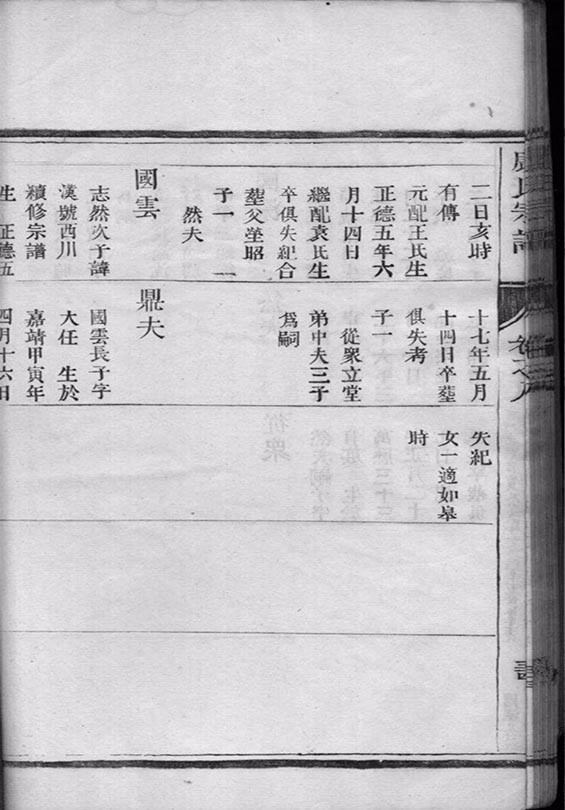 氏宗譜
卷之八
二日亥時
有傳
元配王氏生
正德五年六
月十四日
繼配袁氏生
卒俱失紀合
塟父塋昭
子一
然夫
國雲
志然次子諱
漢號西川
續修宗譜
生 正德五
十七年五月
十四日卒塟
俱失考
子一
從衆立堂
弟中夫三子
爲嗣
鼎夫
國雲長子字
大任 生於
嘉靖甲寅年
四月十六日
失紀
女一適如皋
時